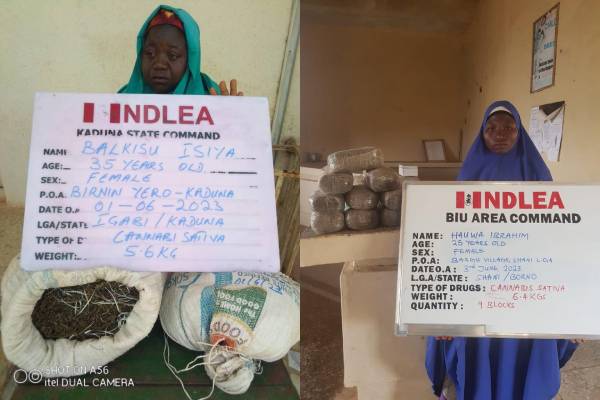 NDLEA
KADUNA STATE COMMAND
NAME: BALKISU ISIYA
AGE: 35 YEARS OLD
SEX: FEMALE
P.O.A: BIRNIN YERO-KADUNA
DATE O.A 01-06-2023
LGA/STATE: IGABI/KADUNA
TYPE OF D CANNABIS SATIVA
WEIGHT: 5.6KG
FOOD
SHOT ON A56
itel DUAL CAMERA
NDLEA
BIU AREA COMMAND
NAME: HAUWA IBRAHIM
AGE: 25 YEARS OLD
SEX: FEMALE
P.O.A: VILLAGE, SHANI L.G.A
DATEO.A: 3RD JUNE, 2023
L.G.A/STATE: SHANI/BORNO
TYPE OF DRUGS: CANNABIS SATIVA
WEIGHT: 6.4KGS
QUANTITY: 9 BLOCKS